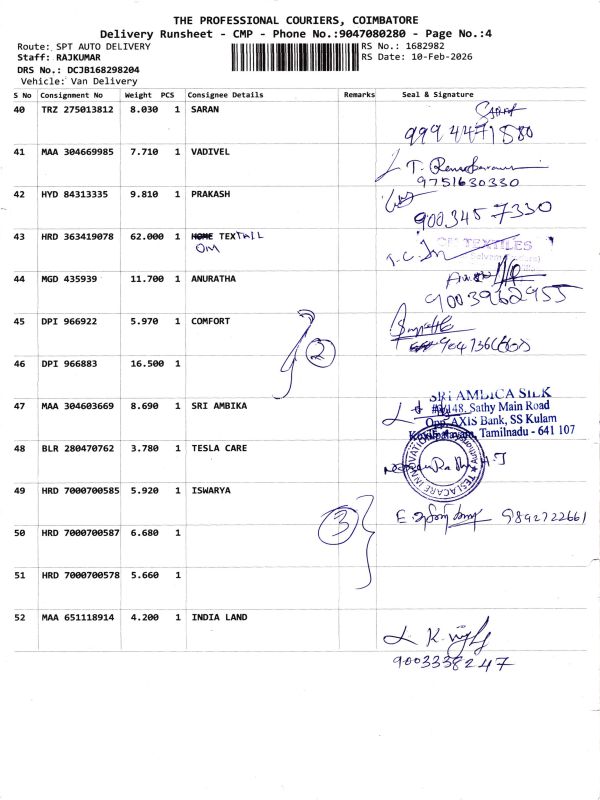 THE PROFESSIONAL COURIERS, COIMBATORE
Delivery Runsheet - CMP - Phone No.:9047080280 - Page No.:4
Route: SPT AUTO DELIVERY
RS No.: 1682982
Staff: RAJKUMAR
RS Date: 10-Feb-2026
DRS No.: DCJB168298204
Vehicle: Van Delivery
S No Consignment No Weight PCS Consignee Details Remarks Seal & Signature
40 TRZ 275013812 8.030 1 SARAN
999 4471580
41 MAA 304669985 7.710 1 VADIVEL
9751630330
42 HYD 84313335 9.810 1 PRAKASH
9003457330
43 HRD 363419078 62.000 1 HOME TEXTAIL
OM
TEXTILES
44 MGD 435939 11.700 1 ANURATHA
9003962955
45 DPI 966922 5.970 1 COMFORT
2
46 DPI 966883 16.500 1
47 MAA 304603669 8.690 1 SRI AMBIKA
SRI AMBICA SILK
148, Sathy Main Road
Opp. AXIS Bank, SS Kulam
Tamilnadu - 641 107
48 BLR 280470762 3.780 1 TESLA CARE
TESLACARE INNOVATION
49 HRD 7000700585 5.920 1 ISWARYA
9892722661
50 HRD 7000700587 6.680 1
3
51 HRD 7000700578 5.660 1
52 MAA 651118914 4.200 1 INDIA LAND
9003338247